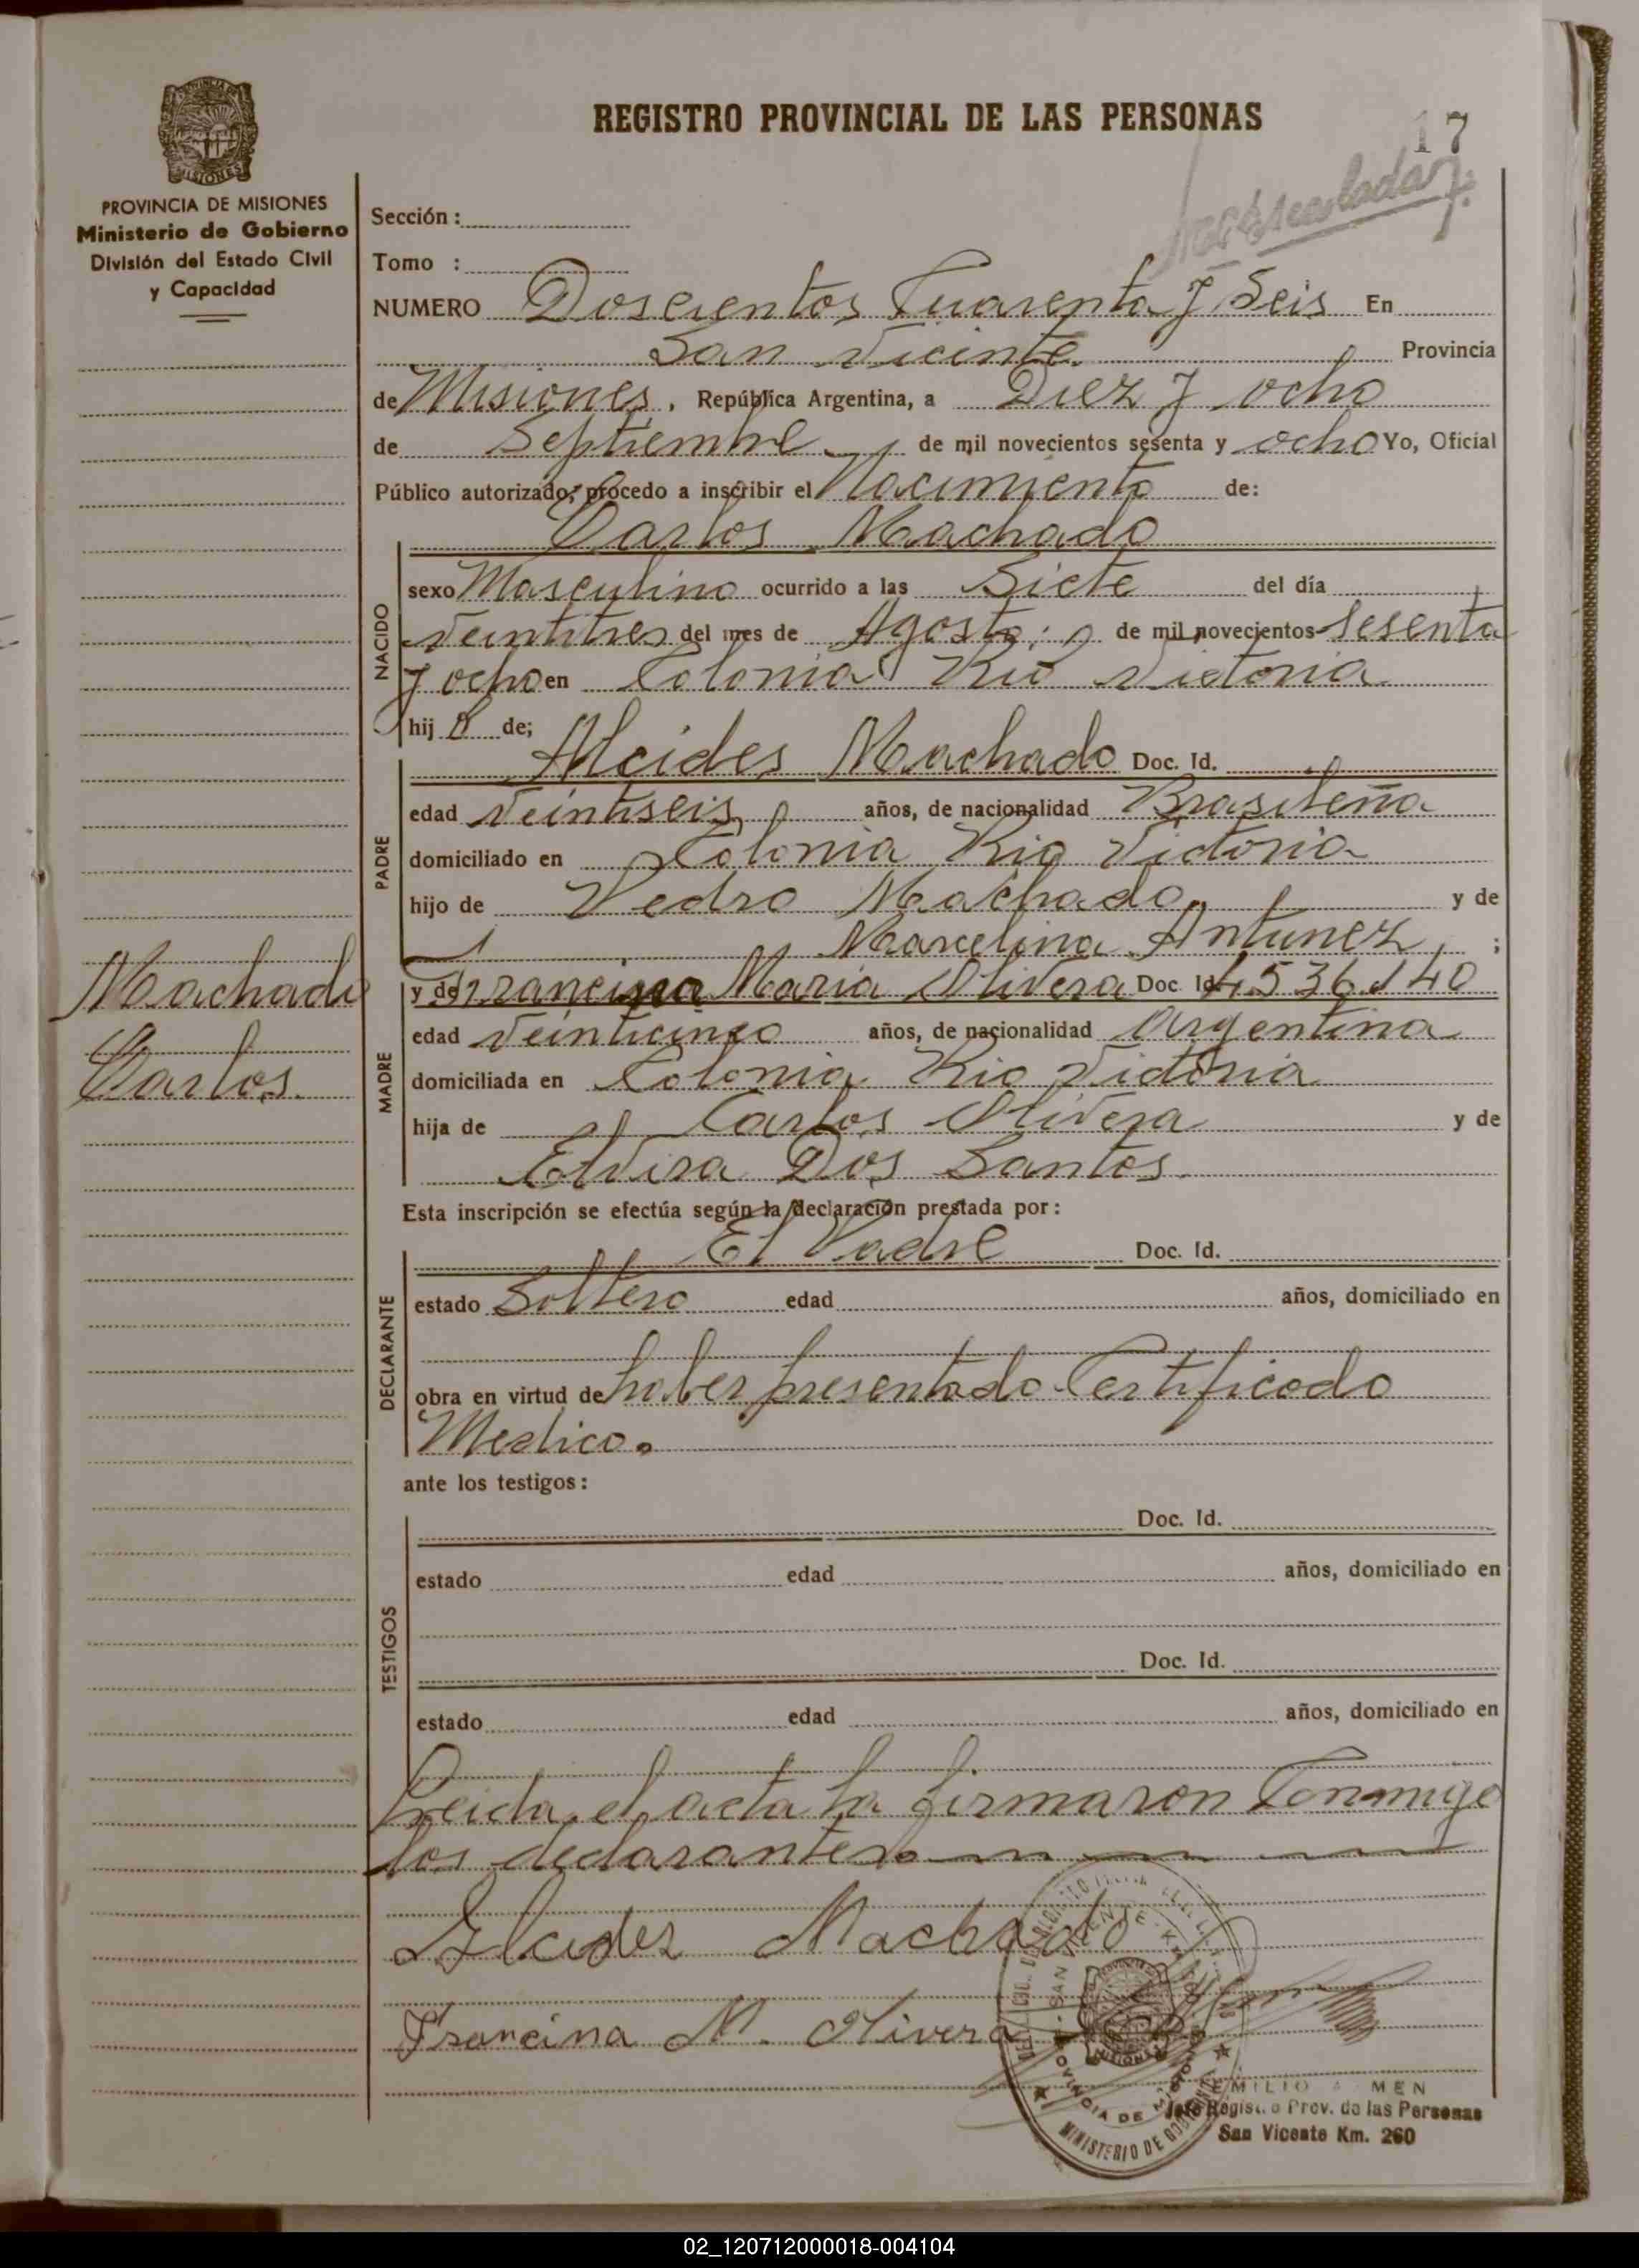 REGISTRO PROVINCIAL DE LAS PERSONAS
17
MISIONES
PROVINCIA DE MISIONES
Ministerio de Gobierno
División del Estado Civil
y Capacidad
Sección :
Tomo :
NUMERO Doscientos Cuarenta y Seis En
San Vicente Provincia
de Misiones, República Argentina, a Diez y ocho
de Septiembre de mil novecientos sesenta y ocho Yo, Oficial
Público autorizado, procedo a inscribir el Nacimiento de:
Carlos Machado
NACIDO
sexo Masculino ocurrido a las Siete del día
Veintitres del mes de Agosto de mil novecientos Sesenta
y ocho en Colonia Rio Victoria
hij o de;
PADRE
Alcides Machado Doc. Id.
edad Veintiseis años, de nacionalidad Brasileña
domiciliado en Colonia Rio Victoria
hijo de Pedro Machado y de
Marcelina Antunez ;
Machado
Carlos.
MADRE
y de Francina Maria Olivera Doc. Id. 4.536.140
edad Veinticinco años, de nacionalidad Argentina
domiciliada en Colonia Rio Victoria
hija de Carlos Olivera y de
Elvira Dos Santos
Esta inscripción se efectúa según la declaración prestada por:
DECLARANTE
El Padre Doc. Id.
estado Soltero edad años, domiciliado en
obra en virtud de haber presentado Certificado
Medico.
ante los testigos:
TESTIGOS
Doc. Id.
estado edad años, domiciliado en
Doc. Id.
estado edad años, domiciliado en
Leida el acta la firmaron Conmigo
los declarantes
Alcides Machado
Francina M. Olivera
SAN VICENTE
PROVINCIA DE MISIONES
MINISTERIO DE GOBIERNO
EMILIO MEN
Jefe Registro Prov. de las Personas
San Vicente Km. 260
02_120712000018-004104